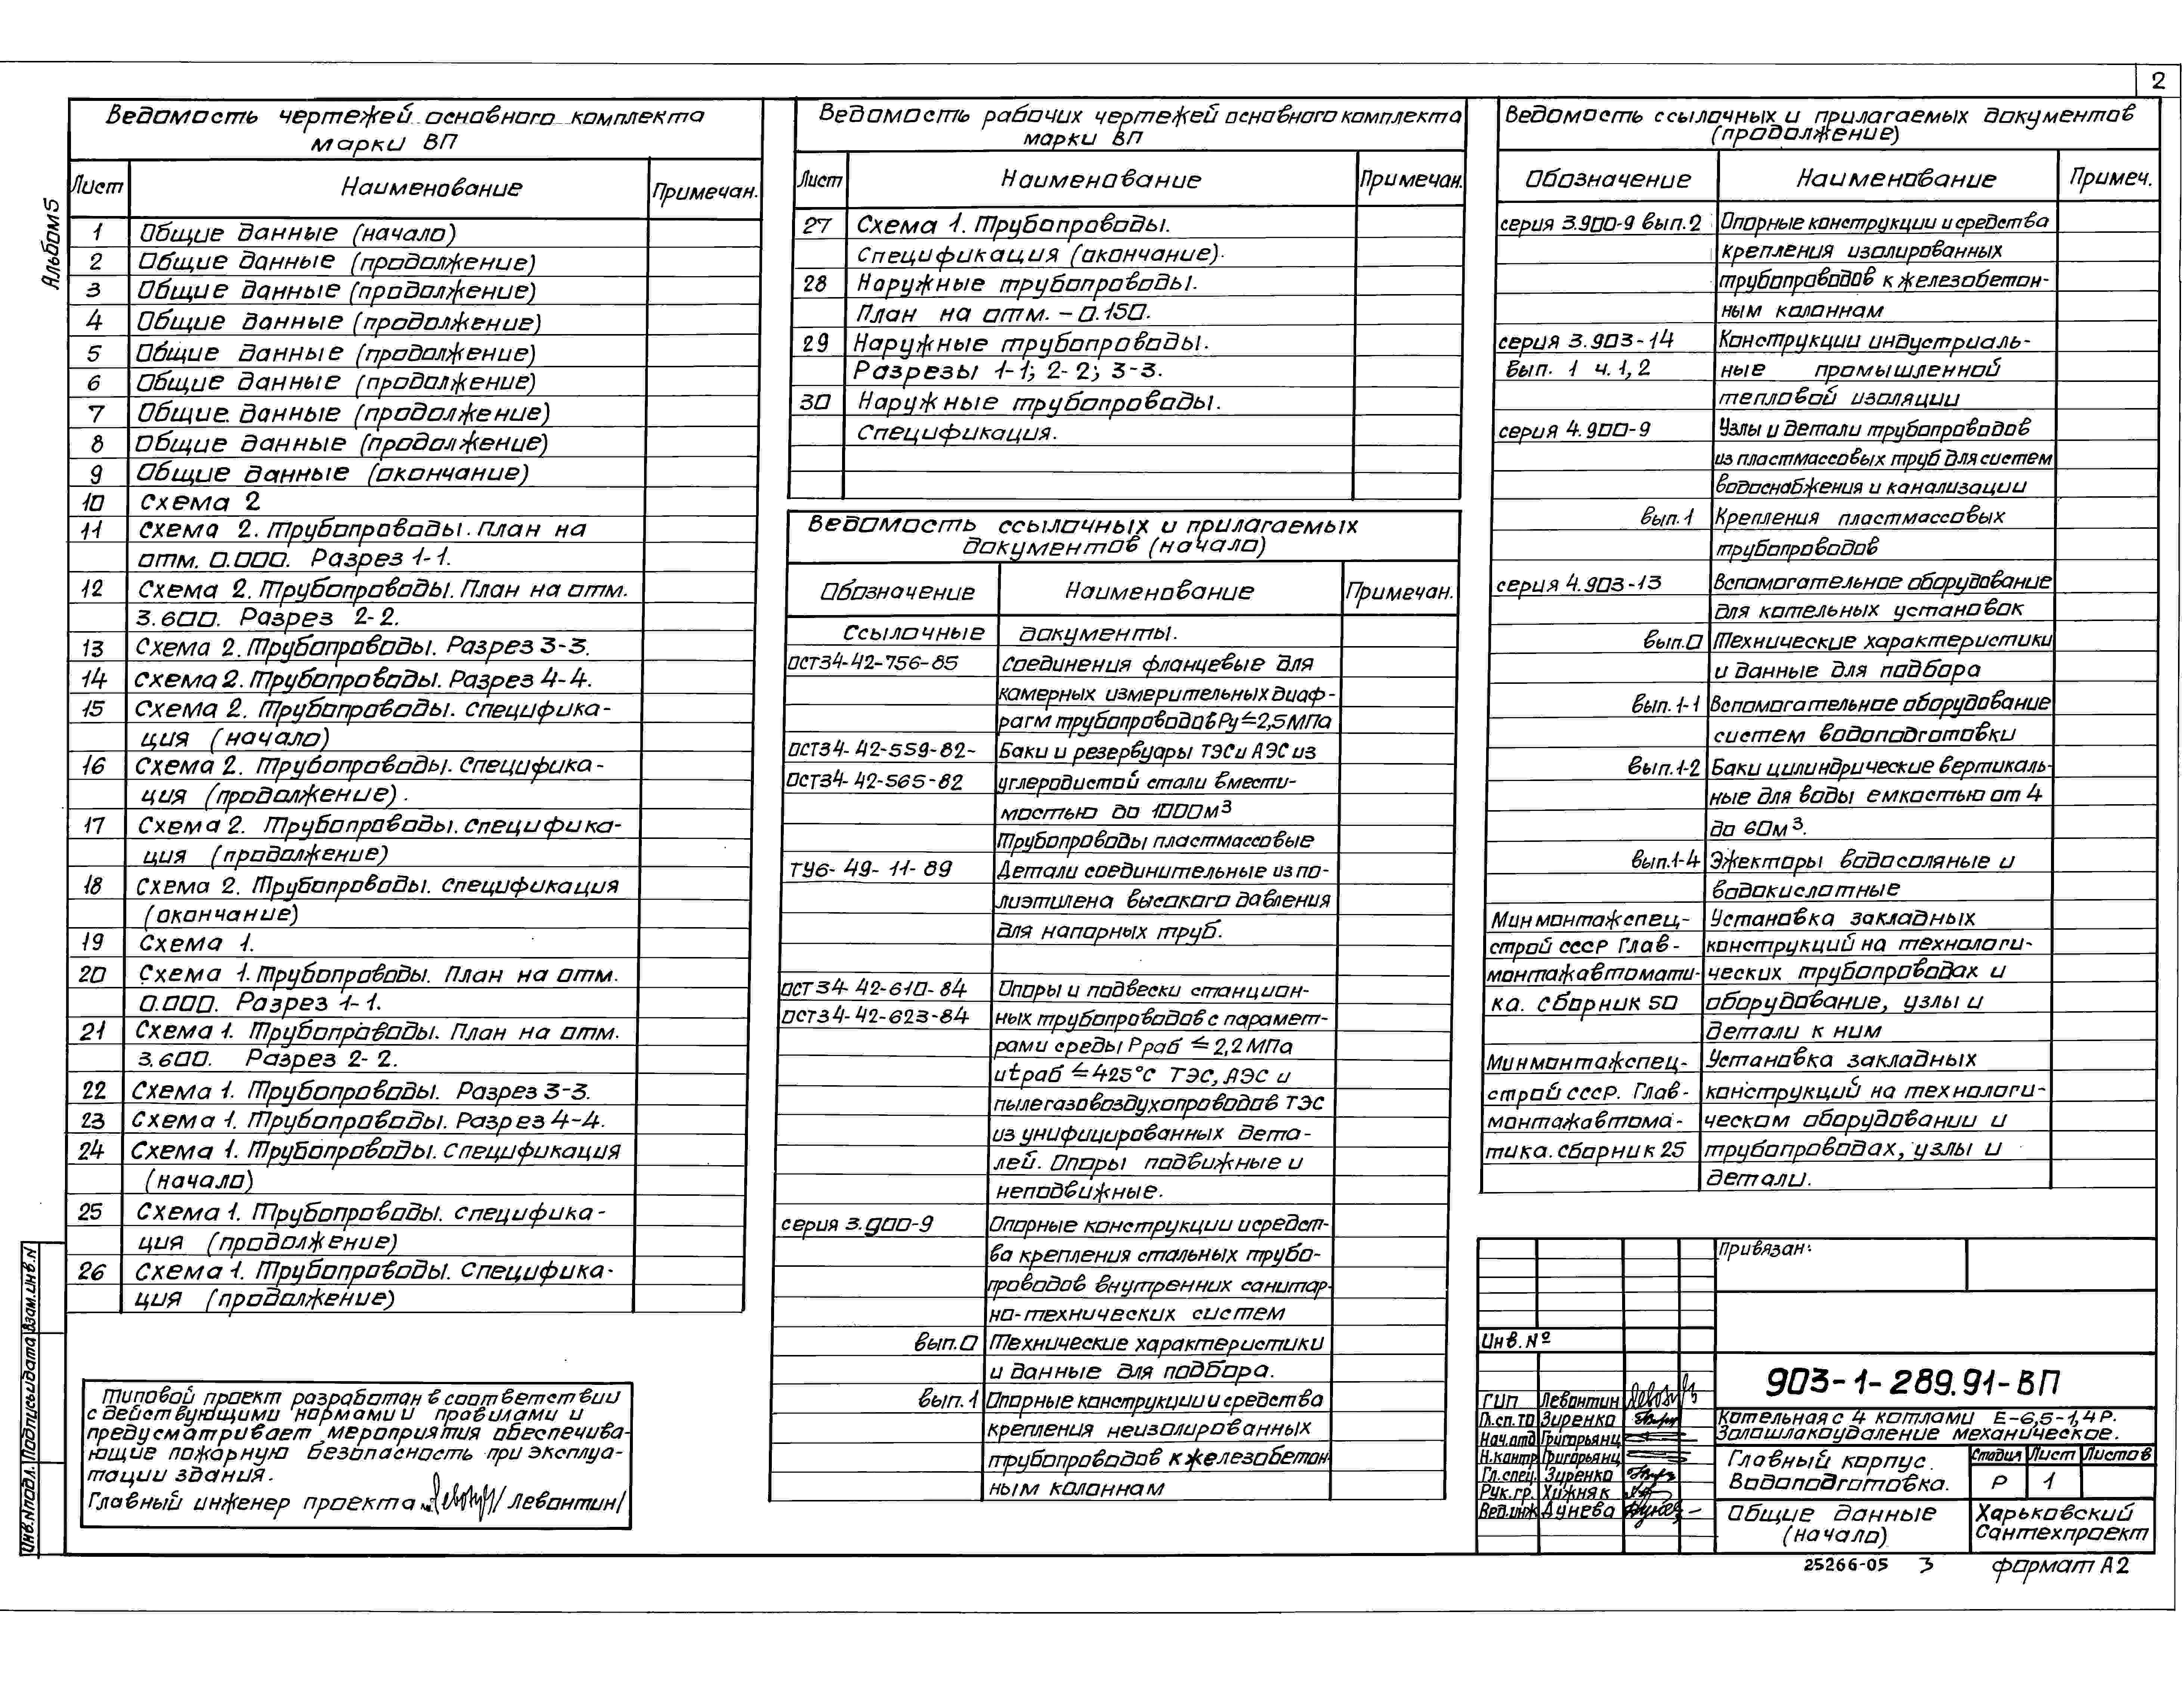 2
Альбом 5
Ведомость чертежей основного комплекта
марки ВП
Лист Наименование Примечан.
1 Общие данные (начало)
2 Общие данные (продолжение)
3 Общие данные (продолжение)
4 Общие данные (продолжение)
5 Общие данные (продолжение)
6 Общие данные (продолжение)
7 Общие данные (продолжение)
8 Общие данные (продолжение)
9 Общие данные (окончание)
10 Схема 2
11 Схема 2. Трубопроводы. План на
отм. 0.000. Разрез 1-1.
12 Схема 2. Трубопроводы. План на отм.
3.600. Разрез 2-2.
13 Схема 2. Трубопроводы. Разрез 3-3.
14 Схема 2. Трубопроводы. Разрез 4-4.
15 Схема 2. Трубопроводы. Специфика-
ция (начало)
16 Схема 2. Трубопроводы. Специфика-
ция (продолжение).
17 Схема 2. Трубопроводы. Специфика-
ция (продолжение)
18 Схема 2. Трубопроводы. Спецификация
(окончание)
19 Схема 1.
20 Схема 1. Трубопроводы. План на отм.
0.000. Разрез 1-1.
21 Схема 1. Трубопроводы. План на отм.
3.600. Разрез 2-2.
22 Схема 1. Трубопроводы. Разрез 3-3.
23 Схема 1. Трубопроводы. Разрез 4-4.
24 Схема 1. Трубопроводы. Спецификация
(начало)
25 Схема 1. Трубопроводы. Специфика-
ция (продолжение)
26 Схема 1. Трубопроводы. Специфика-
ция (продолжение)
Типовой проект разработан в соответствии
с действующими нормами и правилами и
предусматривает мероприятия обеспечива-
ющие пожарную безопасность при эксплуа-
тации здания.
Главный инженер проекта /Левонтин/
Ведомость рабочих чертежей основного комплекта
марки ВП
Лист Наименование Примечан.
27 Схема 1. Трубопроводы.
Спецификация (окончание).
28 Наружные трубопроводы.
План на отм. -0.150.
29 Наружные трубопроводы.
Разрезы 1-1; 2-2; 3-3.
30 Наружные трубопроводы.
Спецификация.
Ведомость ссылочных и прилагаемых
документов (начало)
Обозначение Наименование Примечан.
Ссылочные документы.
ОСТ34-42-756-85 Соединения фланцевые для
камерных измерительных диаф-
рагм трубопроводов Ру≤2,5МПа
ОСТ34-42-559-82- Баки и резервуары ТЭС и АЭС из
ОСТ34-42-565-82 углеродистой стали вмести-
мостью до 1000м³
Трубопроводы пластмассовые
ТУ6-49-11-89 Детали соединительные из по-
лиэтилена высокого давления
для напорных труб.
ОСТ34-42-610-84 Опоры и подвески станцион-
ОСТ34-42-623-84 ных трубопроводов с парамет-
рами среды Рраб ≤ 2,2МПа
и tраб ≤ 425°С ТЭС, АЭС и
пылегазовоздухопроводов ТЭС
из унифицированных дета-
лей. Опоры подвижные и
неподвижные.
серия 3.900-9 Опорные конструкции и средст-
ва крепления стальных трубо-
проводов внутренних санитар-
но-технических систем
вып.0 Технические характеристики
и данные для подбора.
вып.1 Опорные конструкции и средства
крепления неизолированных
трубопроводов к железобетон-
ным колоннам
Ведомость ссылочных и прилагаемых документов
(продолжение)
Обозначение Наименование Примеч.
серия 3.900-9 вып.2 Опорные конструкции и средства
крепления изолированных
трубопроводов к железобетон-
ным колоннам
серия 3.903-14 Конструкции индустриаль-
вып. 1 ч.1,2 ные промышленной
тепловой изоляции
серия 4.900-9 Узлы и детали трубопроводов
из пластмассовых труб для систем
водоснабжения и канализации
вып.1 Крепления пластмассовых
трубопроводов
серия 4.903-13 Вспомогательное оборудование
для котельных установок
вып.0 Технические характеристики
и данные для подбора
вып.1-1 Вспомогательное оборудование
систем водоподготовки
вып.1-2 Баки цилиндрические вертикаль-
ные для воды емкостью от 4
до 60м³.
вып.1-4 Эжекторы водосоляные и
водокислотные
Минмонтажспец- Установка закладных
строй СССР Глав- конструкций на технологи-
монтажавтомати- ческих трубопроводах и
ка. Сборник 50 оборудование, узлы и
детали к ним
Минмонтажспец- Установка закладных
строй СССР. Глав- конструкций на технологи-
монтажавтома- ческом оборудовании и
тика. Сборник 25 трубопроводах, узлы и
детали.
Привязан:
Инв. №
903-1-289.91-ВП
ГИП Левонтин
Гл.сп.ТО Зиренко
Нач.отд Григорьянц
Н.контр Григорьянц
Гл.спец. Зиренко
Рук.гр. Хижняк
Вед.инж Дунева
Котельная с 4 котлами Е-6,5-1,4Р.
Золошлакоудаление механическое.
Главный корпус.
Водоподготовка.
Стадия Лист Листов
Р 1
Общие данные
(начало)
Харьковский
Сантехпроект
25266-05 3 формат А2
Инв.N подл. Подпись и дата Взам.инв.N